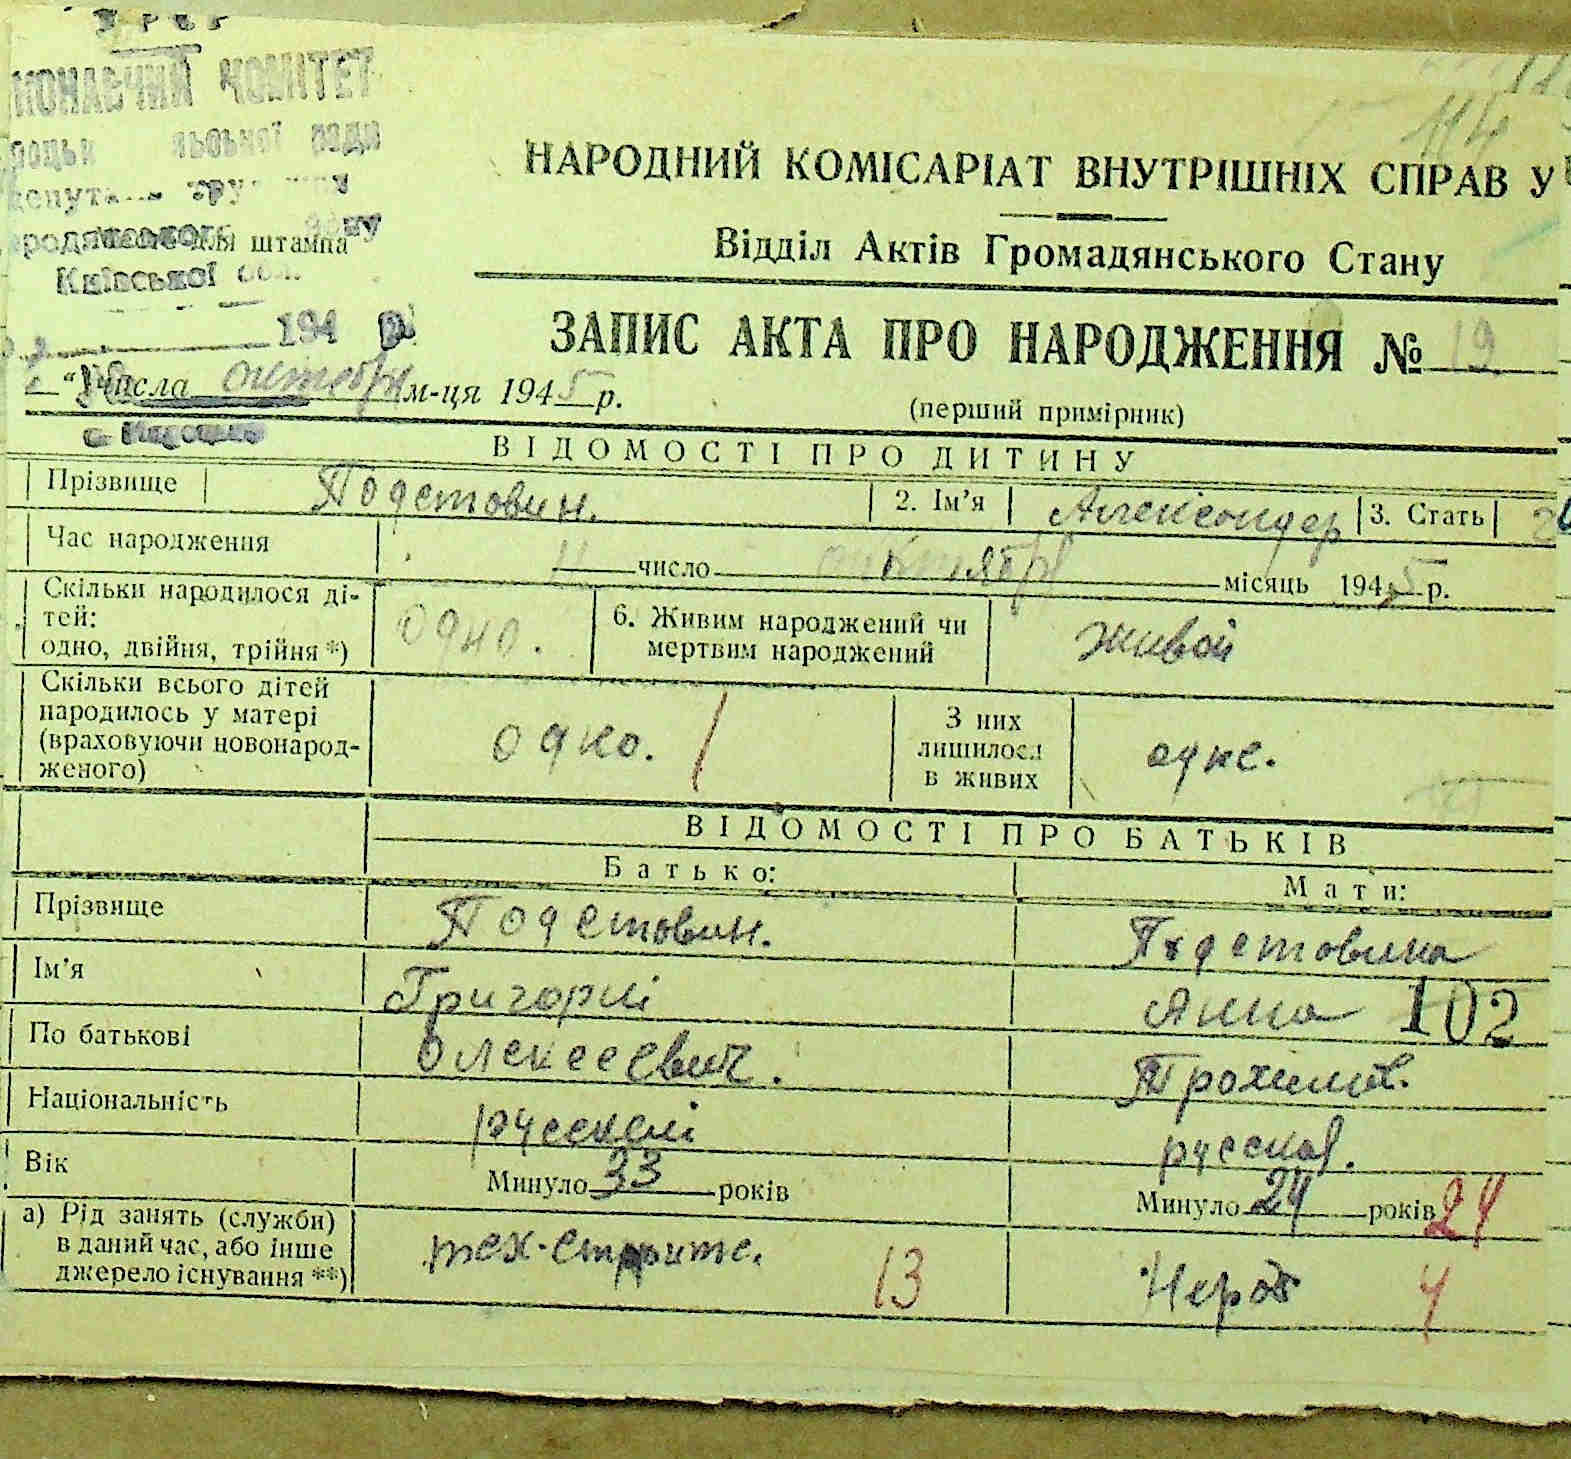 УРСР
КОНАВЧИЙ КОМІТЕТ
ради
Місце для штампа
Київської обл.
114
НАРОДНИЙ КОМІСАРІАТ ВНУТРІШНІХ СПРАВ У
Відділ Актів Громадянського Стану
ЗАПИС АКТА ПРО НАРОДЖЕННЯ № 19
194 р.
числа октября м-ця 1945 р.
(перший примірник)
ВІДОМОСТІ ПРО ДИТИНУ
Прізвище Подстовин. 2. Ім'я Александер 3. Стать
Час народження 11 число октября місяць 1945 р.
Скільки народилося ді-
тей:
одно, двійня, трійня*) одно. 6. Живим народжений чи
мертвим народжений живой
Скільки всього дітей
народилось у матері
(враховуючи новонарод-
женого) одно. 1 З них
лишилося
в живих одне.
ВІДОМОСТІ ПРО БАТЬКІВ
Батько: Мати:
Прізвище Подстовин. Подстовина
Ім'я Григорій Анна 102
По батькові Олексеевич. Трохимов.
Національність русский русская.
Вік Минуло 33 років Минуло 24 років 24
а) Рід занять (служби)
в даний час, або інше
джерело існування **) тех. 13 Нераб 4